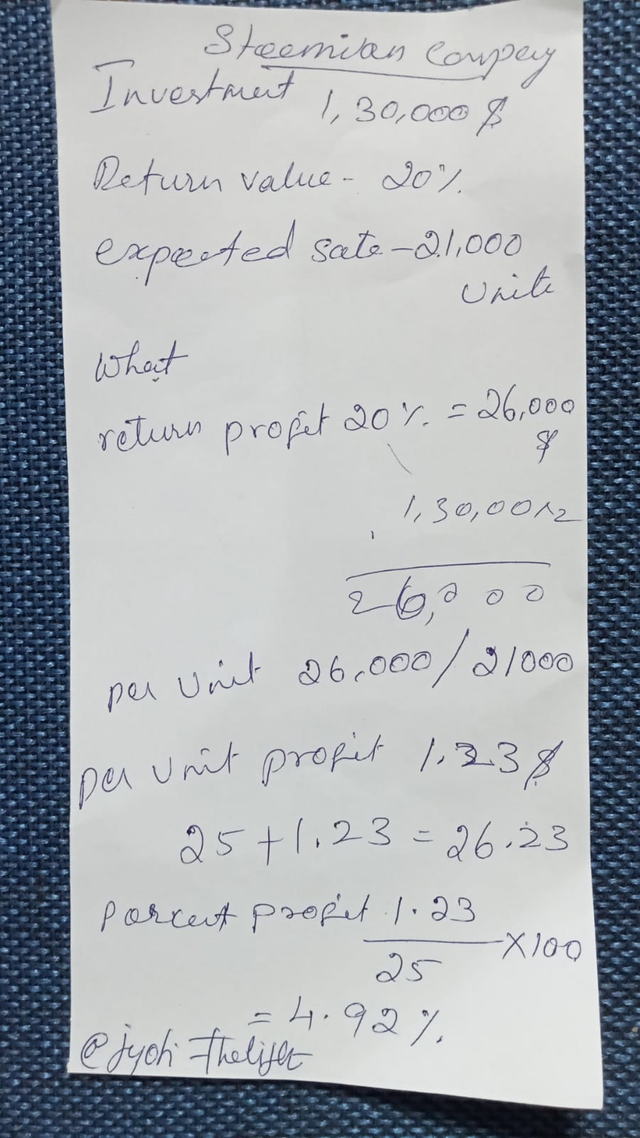 Steemian Compey
Investment 1,30,000 $
Return value - 20%
expected sate - 21,000
Units
What
return profit 20%. = 26,000
$
1,30,00 12
26,000
per Unit 26,000/21000
per Unit profit 1.23 $
25 + 1.23 = 26.23
Porcent profit 1.23
25
×100
= 4.92%
@jyoti-thelight